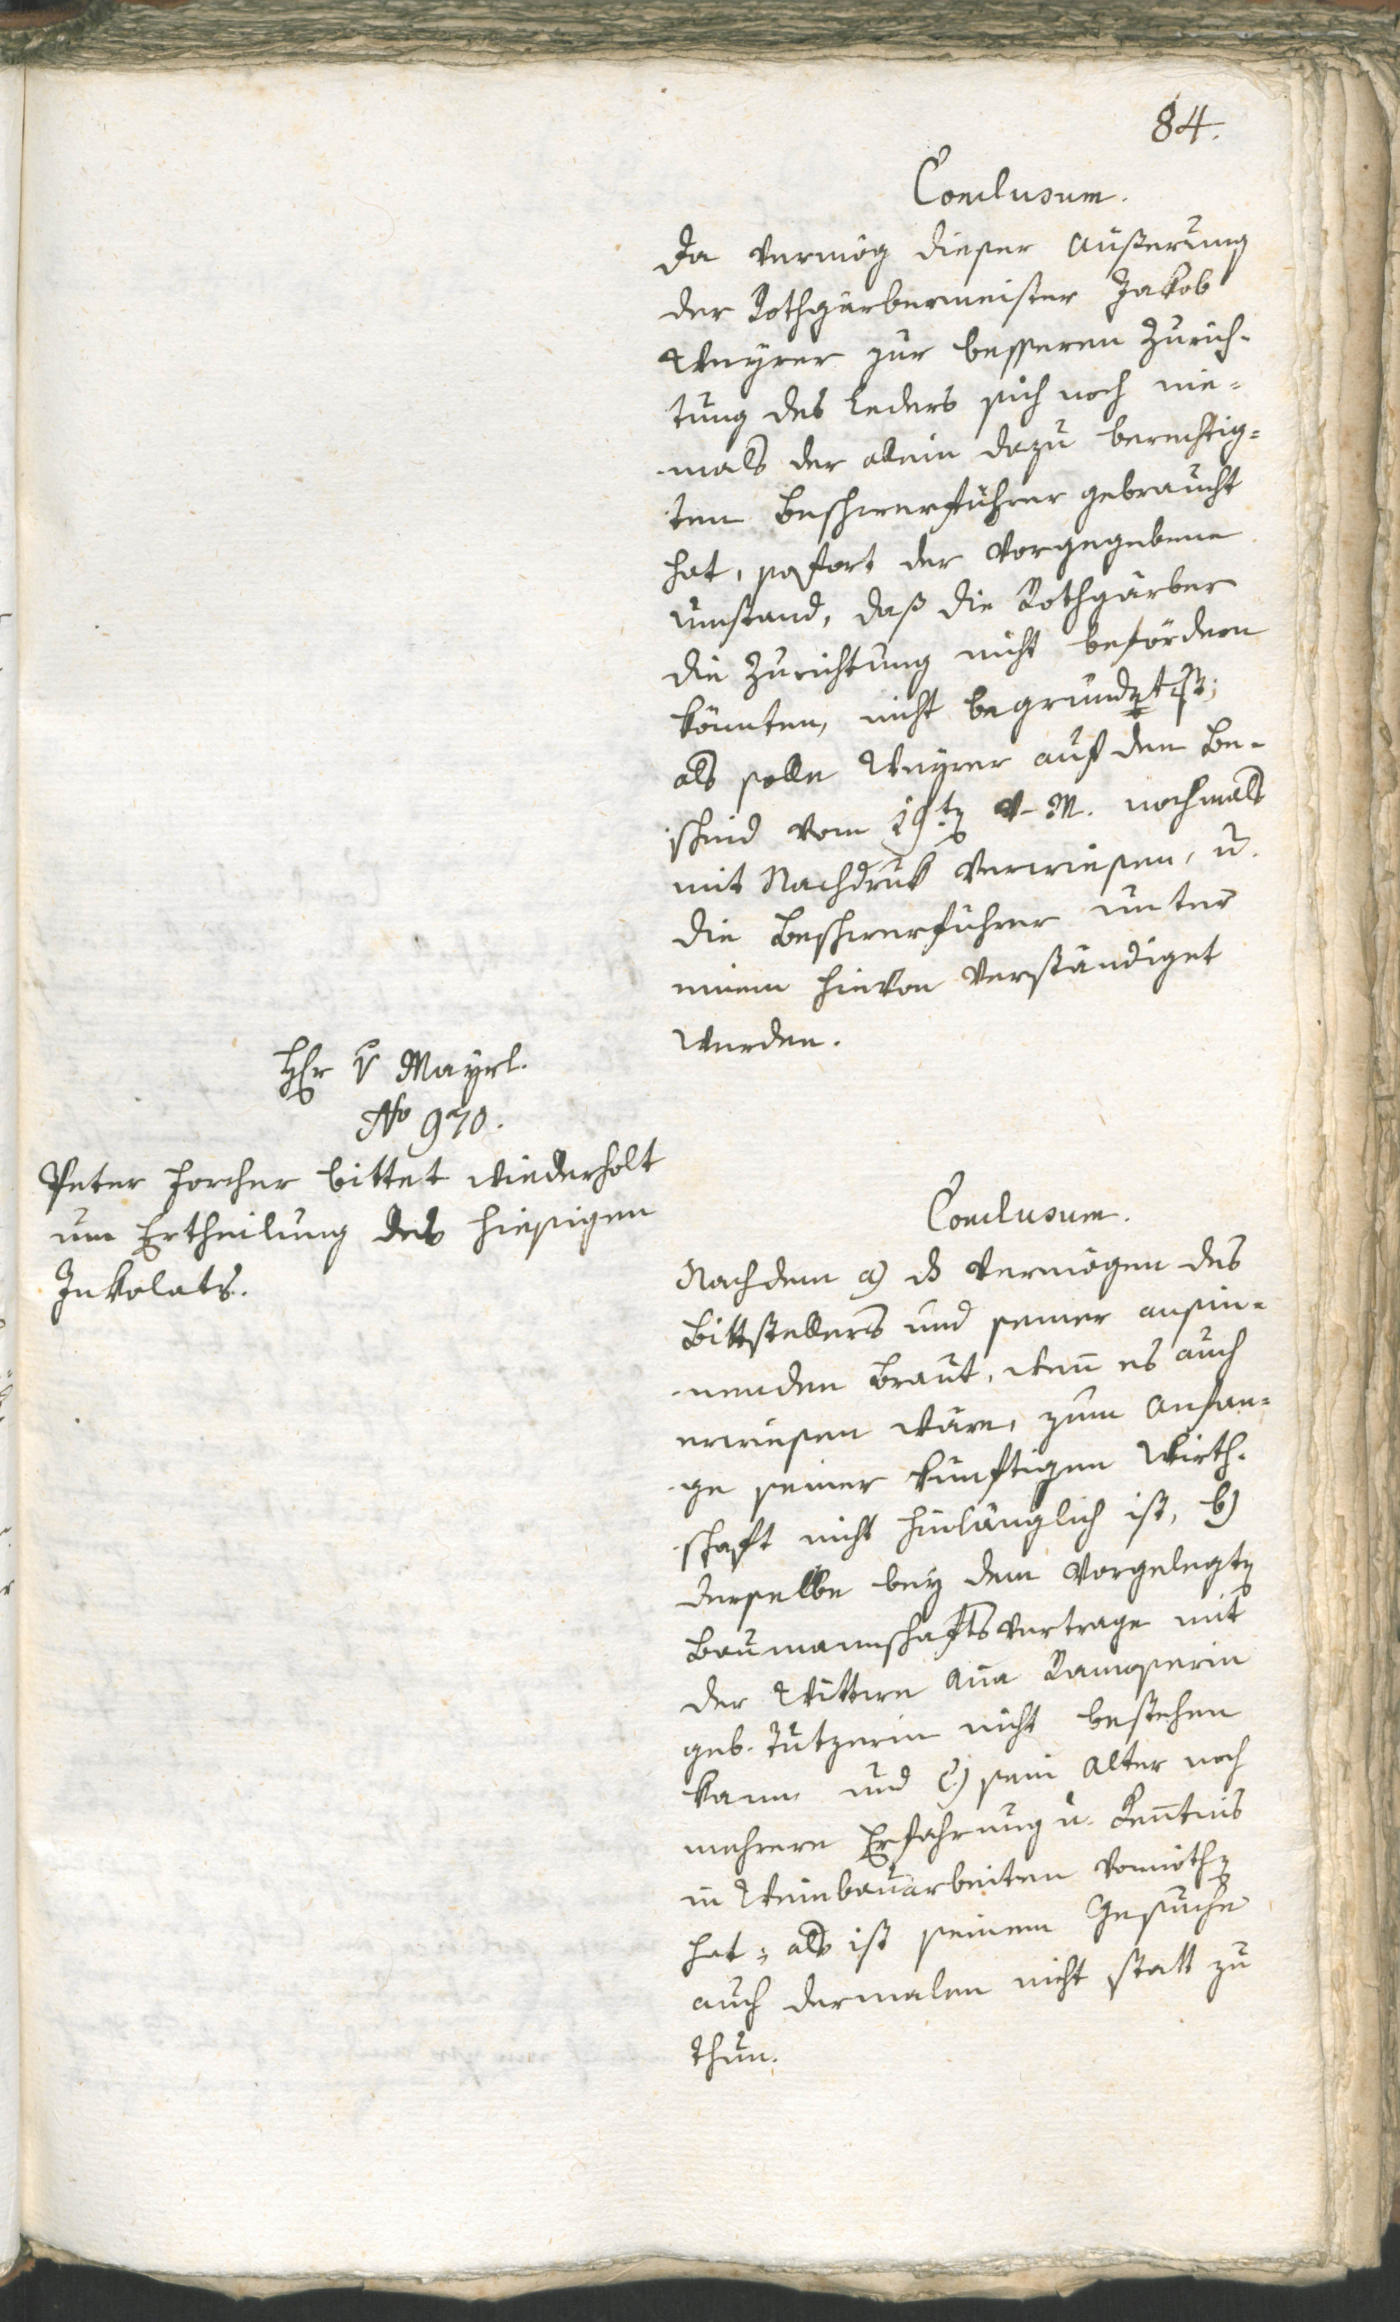 84.
Conclusum.
Da vermög dieser Äußerung
der Rothgärbermeister Jakob
Weyrer zur besseren Zurich-
tung des Leders sich noch nie-
mals der allein dazu berechtig-
ten Beschwerführer gebraucht
hat, sofort der vorgegebene
Umstand, daß die Rothgärber
die Zurichtung nicht befördern
könnten, nicht begründet ist;
als solle Weyrer auf den Be-
scheid vom 19ten v. M. nochmals
mit Nachdruk verwiesen, u.
die Beschwerführer unter
einem hievon verständiget
werden.
Hr v Mayrl.
No 970.
Peter Forcher bittet wiederholt
um Ertheilung des hiesigen
Inkolats.
Conclusum.
Nachdem a) das Vermögen des
Bittstellers und seiner ansin-
nenden Braut, wenn es auch
erwiesen wäre, zum Anfan-
ge seiner künftigen Wirth-
schaft nicht hinlänglich ist, b)
derselbe bey dem vorgelegten
Baumannschaftsvertrage mit
der Wittwe Anna Ramoserin
geb. Tutzerin nicht bestehen
kann und c) sein Alter noch
mehrere Erfahrung u. Kenntnis
in Weinbauarbeiten vonnöthen
hat; als ist seinem Gesuche
auch dermalen nicht statt zu
thun.